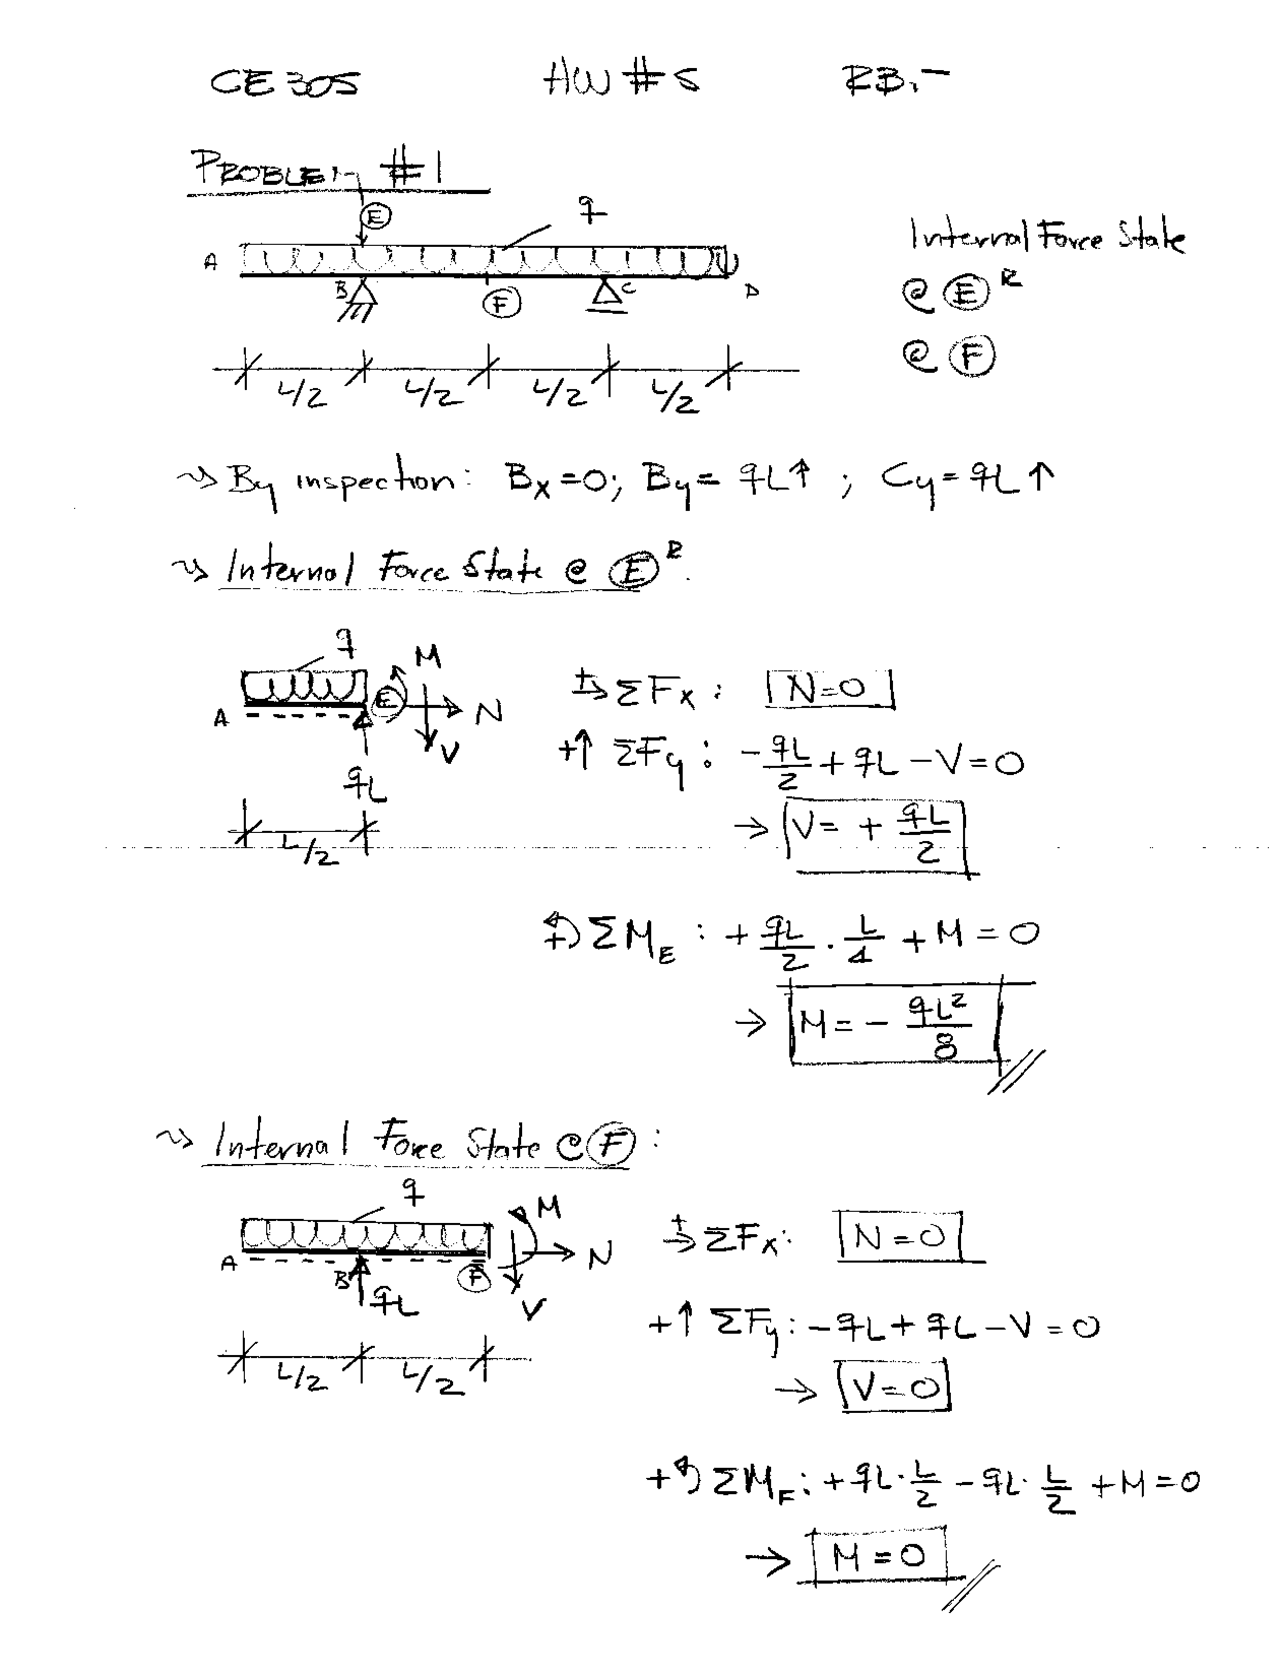 CE 305 HW #5 RB.-
PROBLEM #1
E q
A B F C D
Internal Force State
@ E R
@ F
L/2 L/2 L/2 L/2
By inspection: Bx=0; By= qL↑ ; Cy=qL↑
Internal Force State @ E R.
q M
A E N
V
qL
L/2
+→ ΣFx: N=0
+↑ ΣFy: -qL/2 + qL - V = 0
→ V= + qL/2
+↶ ΣM_E : + qL/2 · L/4 + M = 0
→ M = - qL²/8
Internal Force State @ F :
q M
A B F N
qL V
L/2 L/2
+→ ΣFx: N=0
+↑ ΣFy: -qL + qL - V = 0
→ V=0
+↶ ΣM_F: +qL·L/2 - qL·L/2 + M = 0
→ M = 0